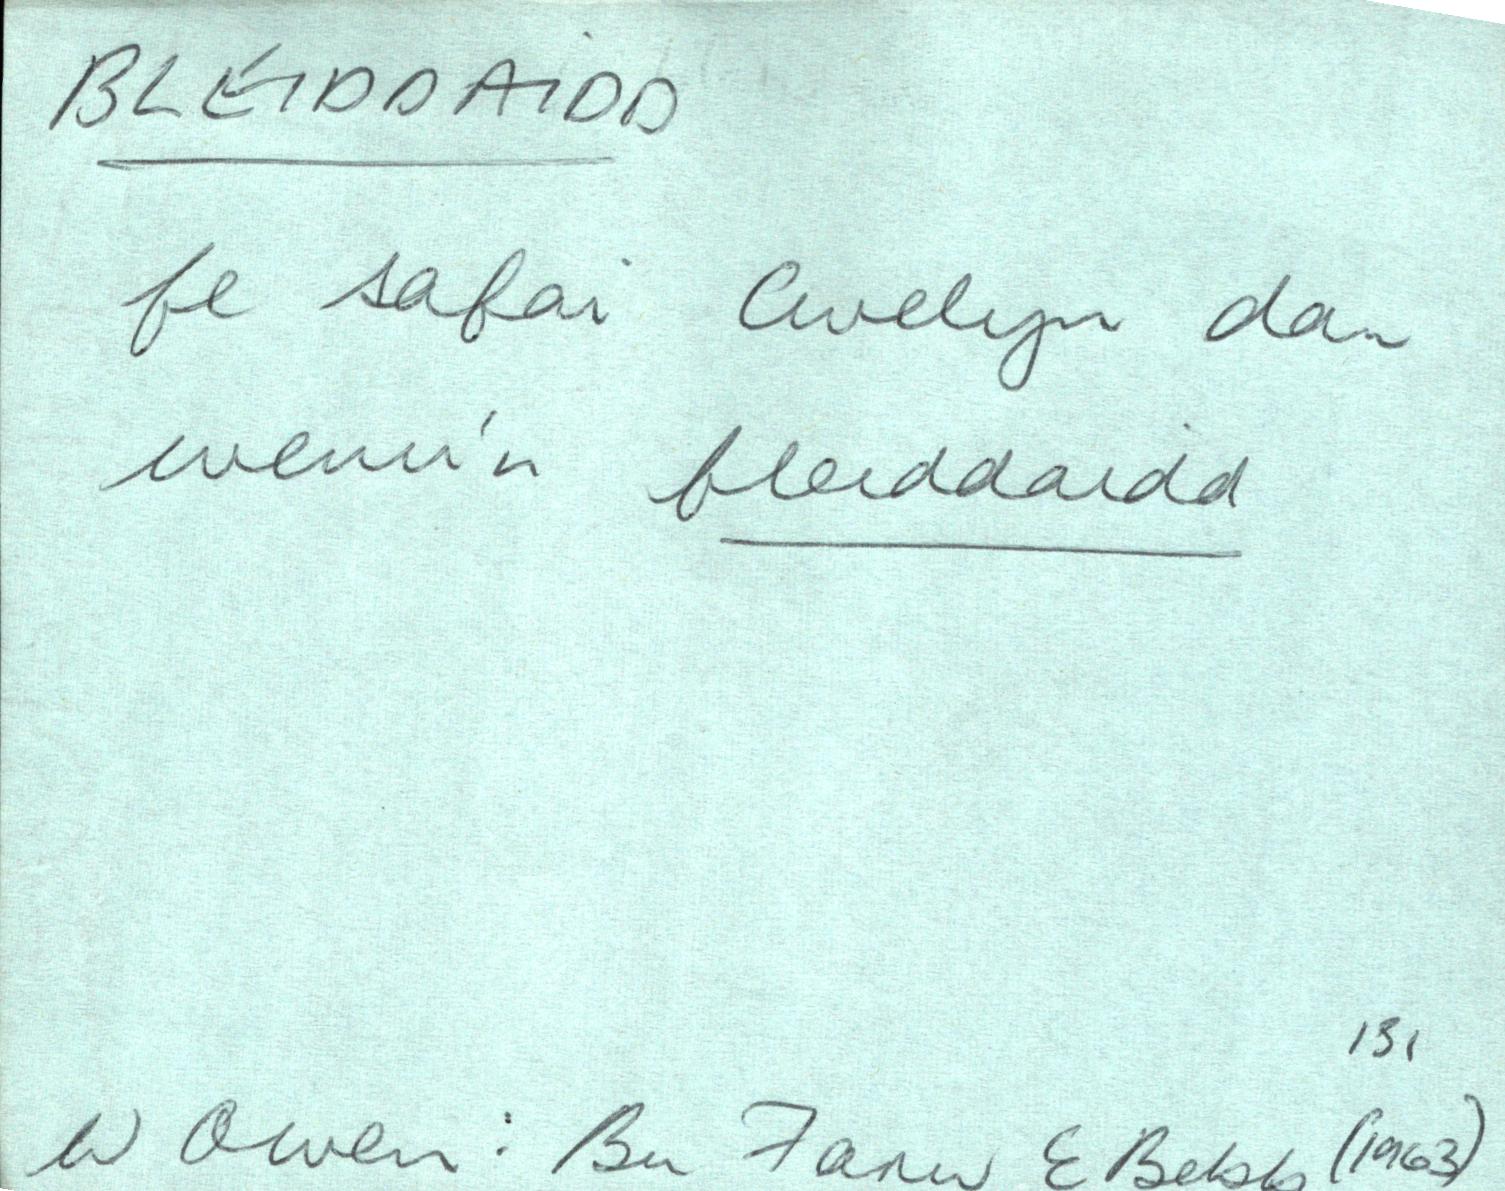 BLEIDDAIDD
fe safai Cwelyn dan
wenu'n fleiddaidd
131
W Owen: Bu Farw E Bebb (1963)